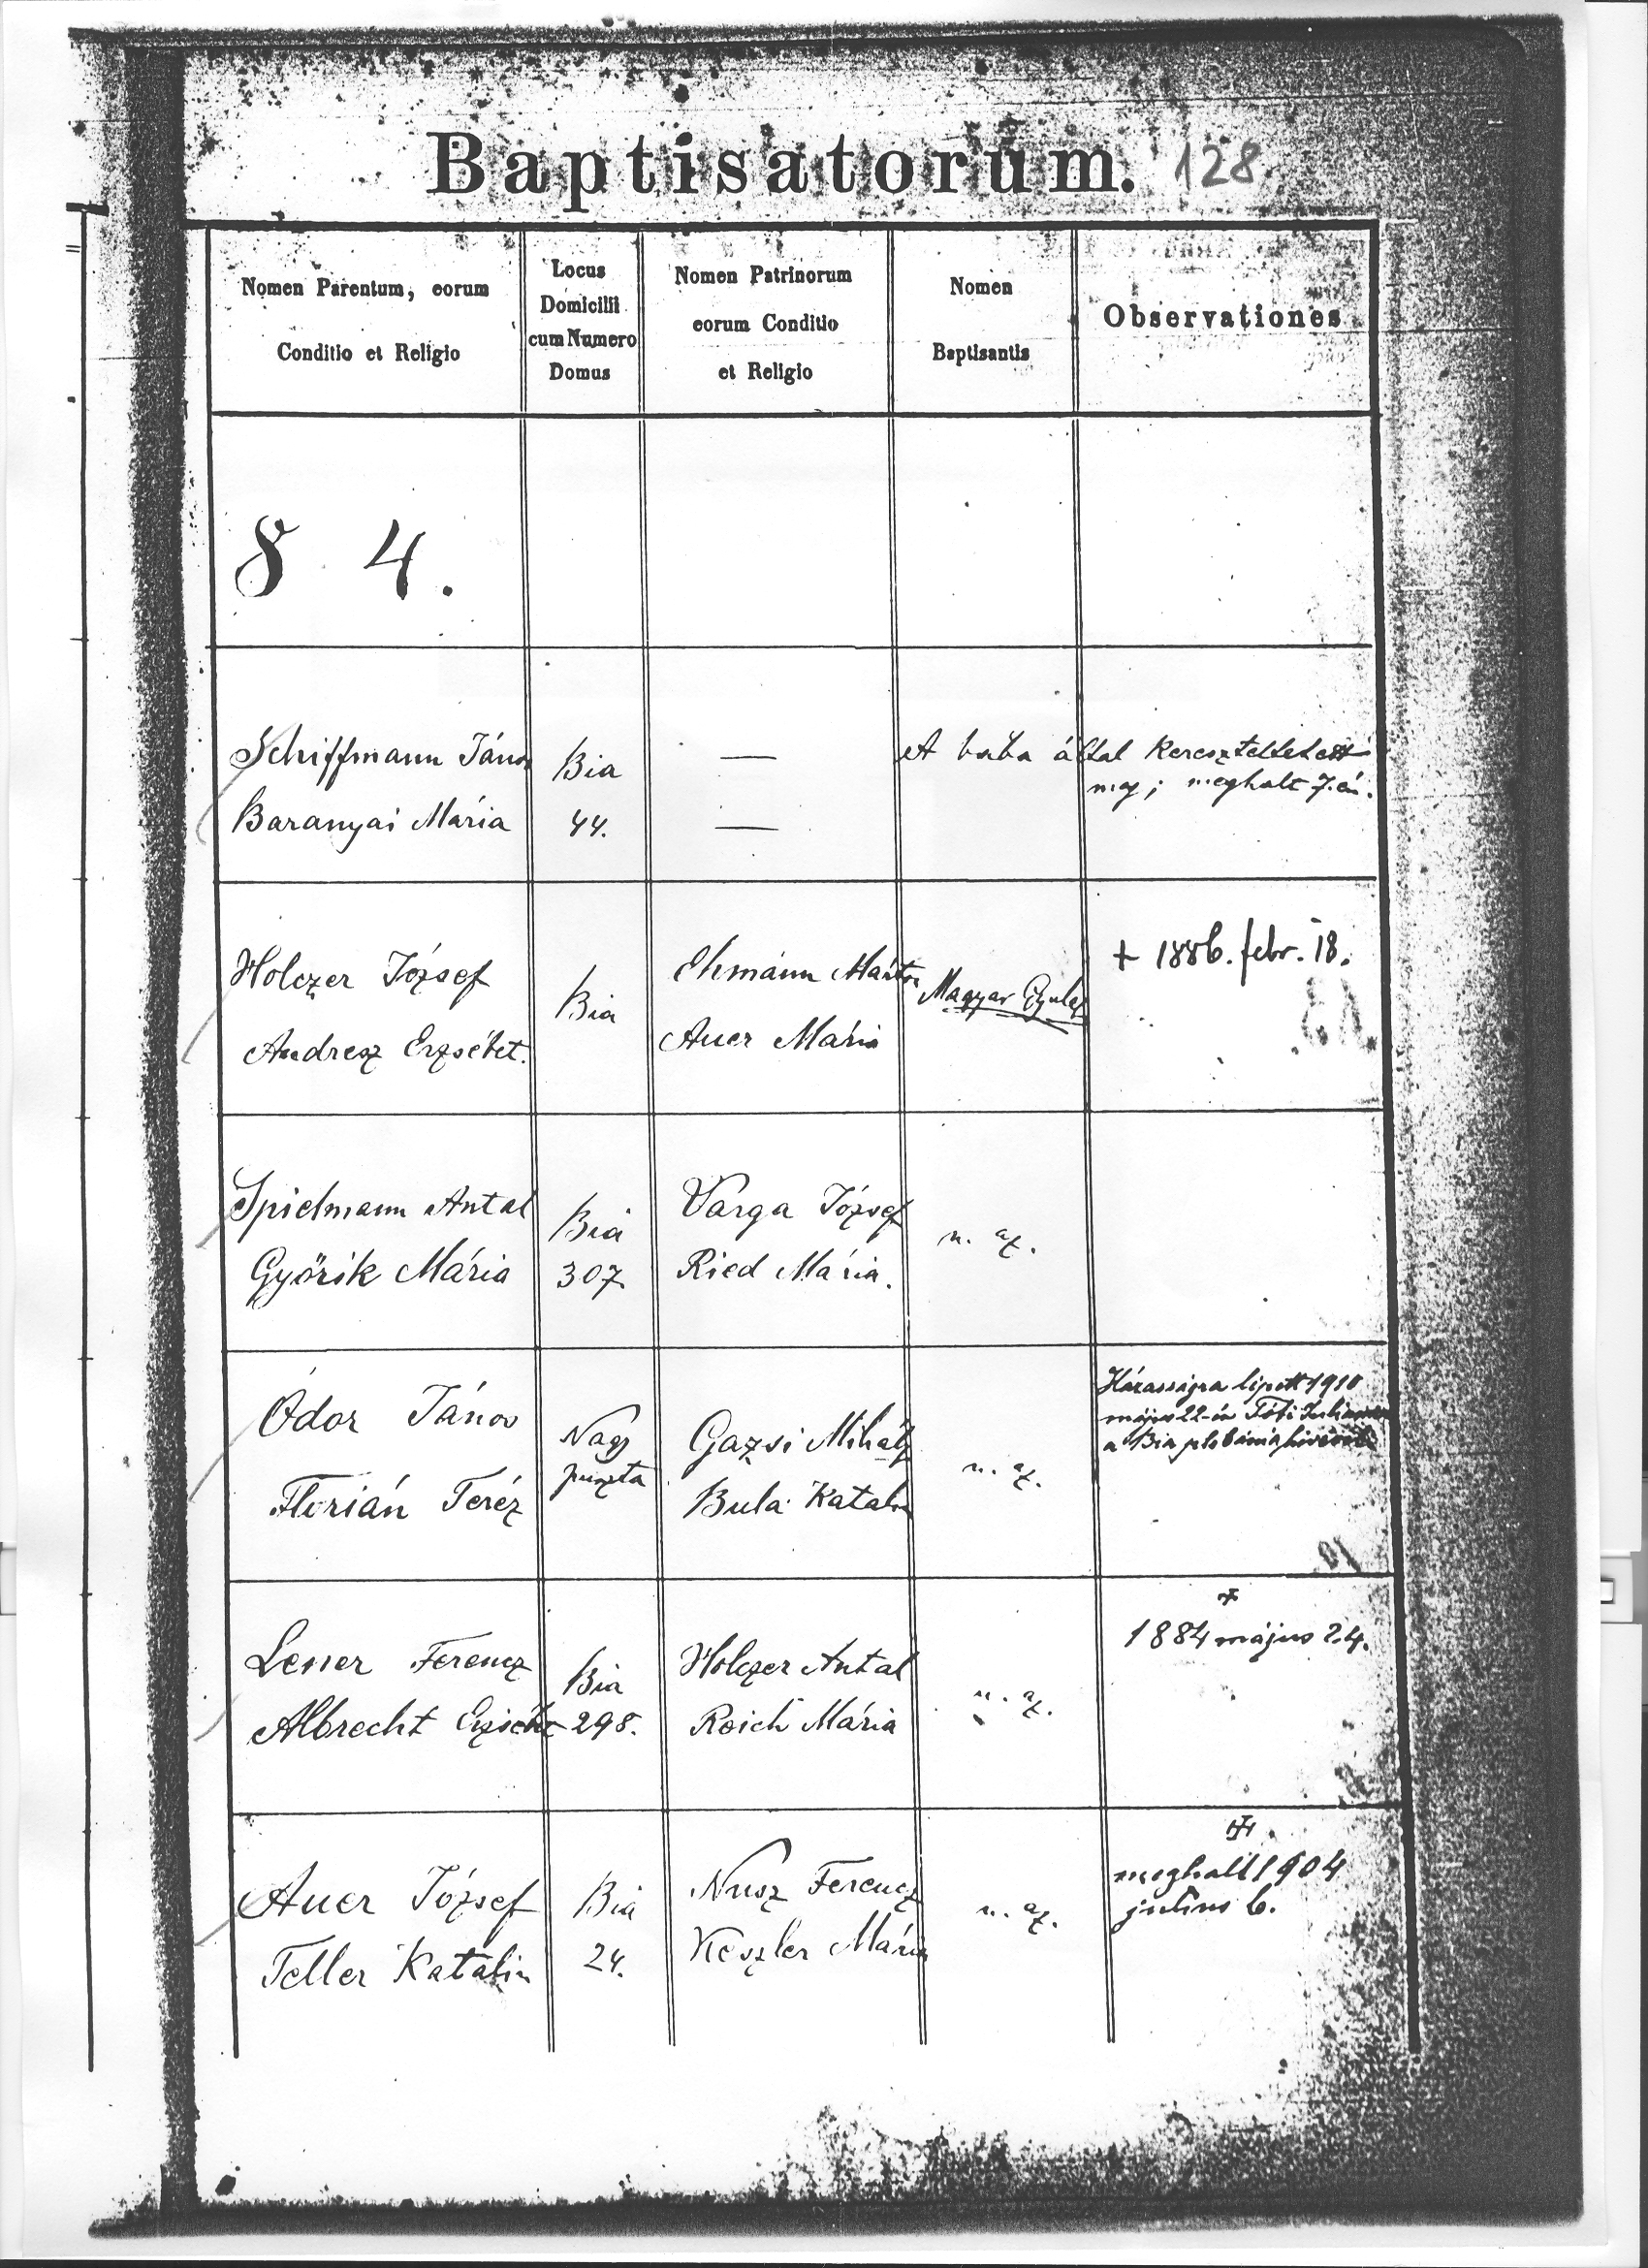 Baptisatorum. 128
Nomen Parentum, eorum
Conditio et Religio
Locus
Domicilii
cum Numero
Domus
Nomen Patrinorum
eorum Conditio
et Religio
Nomen
Baptisantis
Observationes
8 4.
Schiffmann János
Baranyai Mária
Bia
44.
—
—
A bába által kereszteltetett
meg; meghalt 7.én.
Holczer József
Andresz Erzsébet.
Bia
Ehmann Márton
Auer Mária
Magyar Gyula
+ 1886. febr. 18.
Spielmann Antal
Győrik Mária
Bia
307
Varga József
Ried Mária.
u. az.
Ódor János
Florián Teréz
Nagy
puszta
Gazsi Mihály
Bula Katalin
u. az.
Házasságra lépett 1910
május 22-én Tóti
a Bia plébánia
Lener Ferencz
Albrecht Erzsébet
Bia
298.
Holczer Antal
Reich Mária
u. az.
+
1884 május 24.
Auer József
Teller Katalin
Bia
24.
Nusz Ferencz
Keszler Mária
u. az.
meghalt 1904
julius 6.